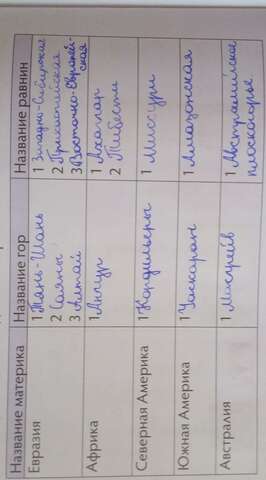 Название материка Название гор Название равнин
Евразия 1 Тянь-Шань 1 Западно-Сибирская
2 Саяны 2 Прикаспийская
3 Алтай 3 Восточно-Европей-
ская
Африка 1 Ахаггар
2 Тибести
Северная Америка 1 Кордильеры 1 Миссури
Южная Америка 1 Уаскаран 1 Амазонская
Австралия 1 Масгрейв 1 Австралийское
плоскогорье